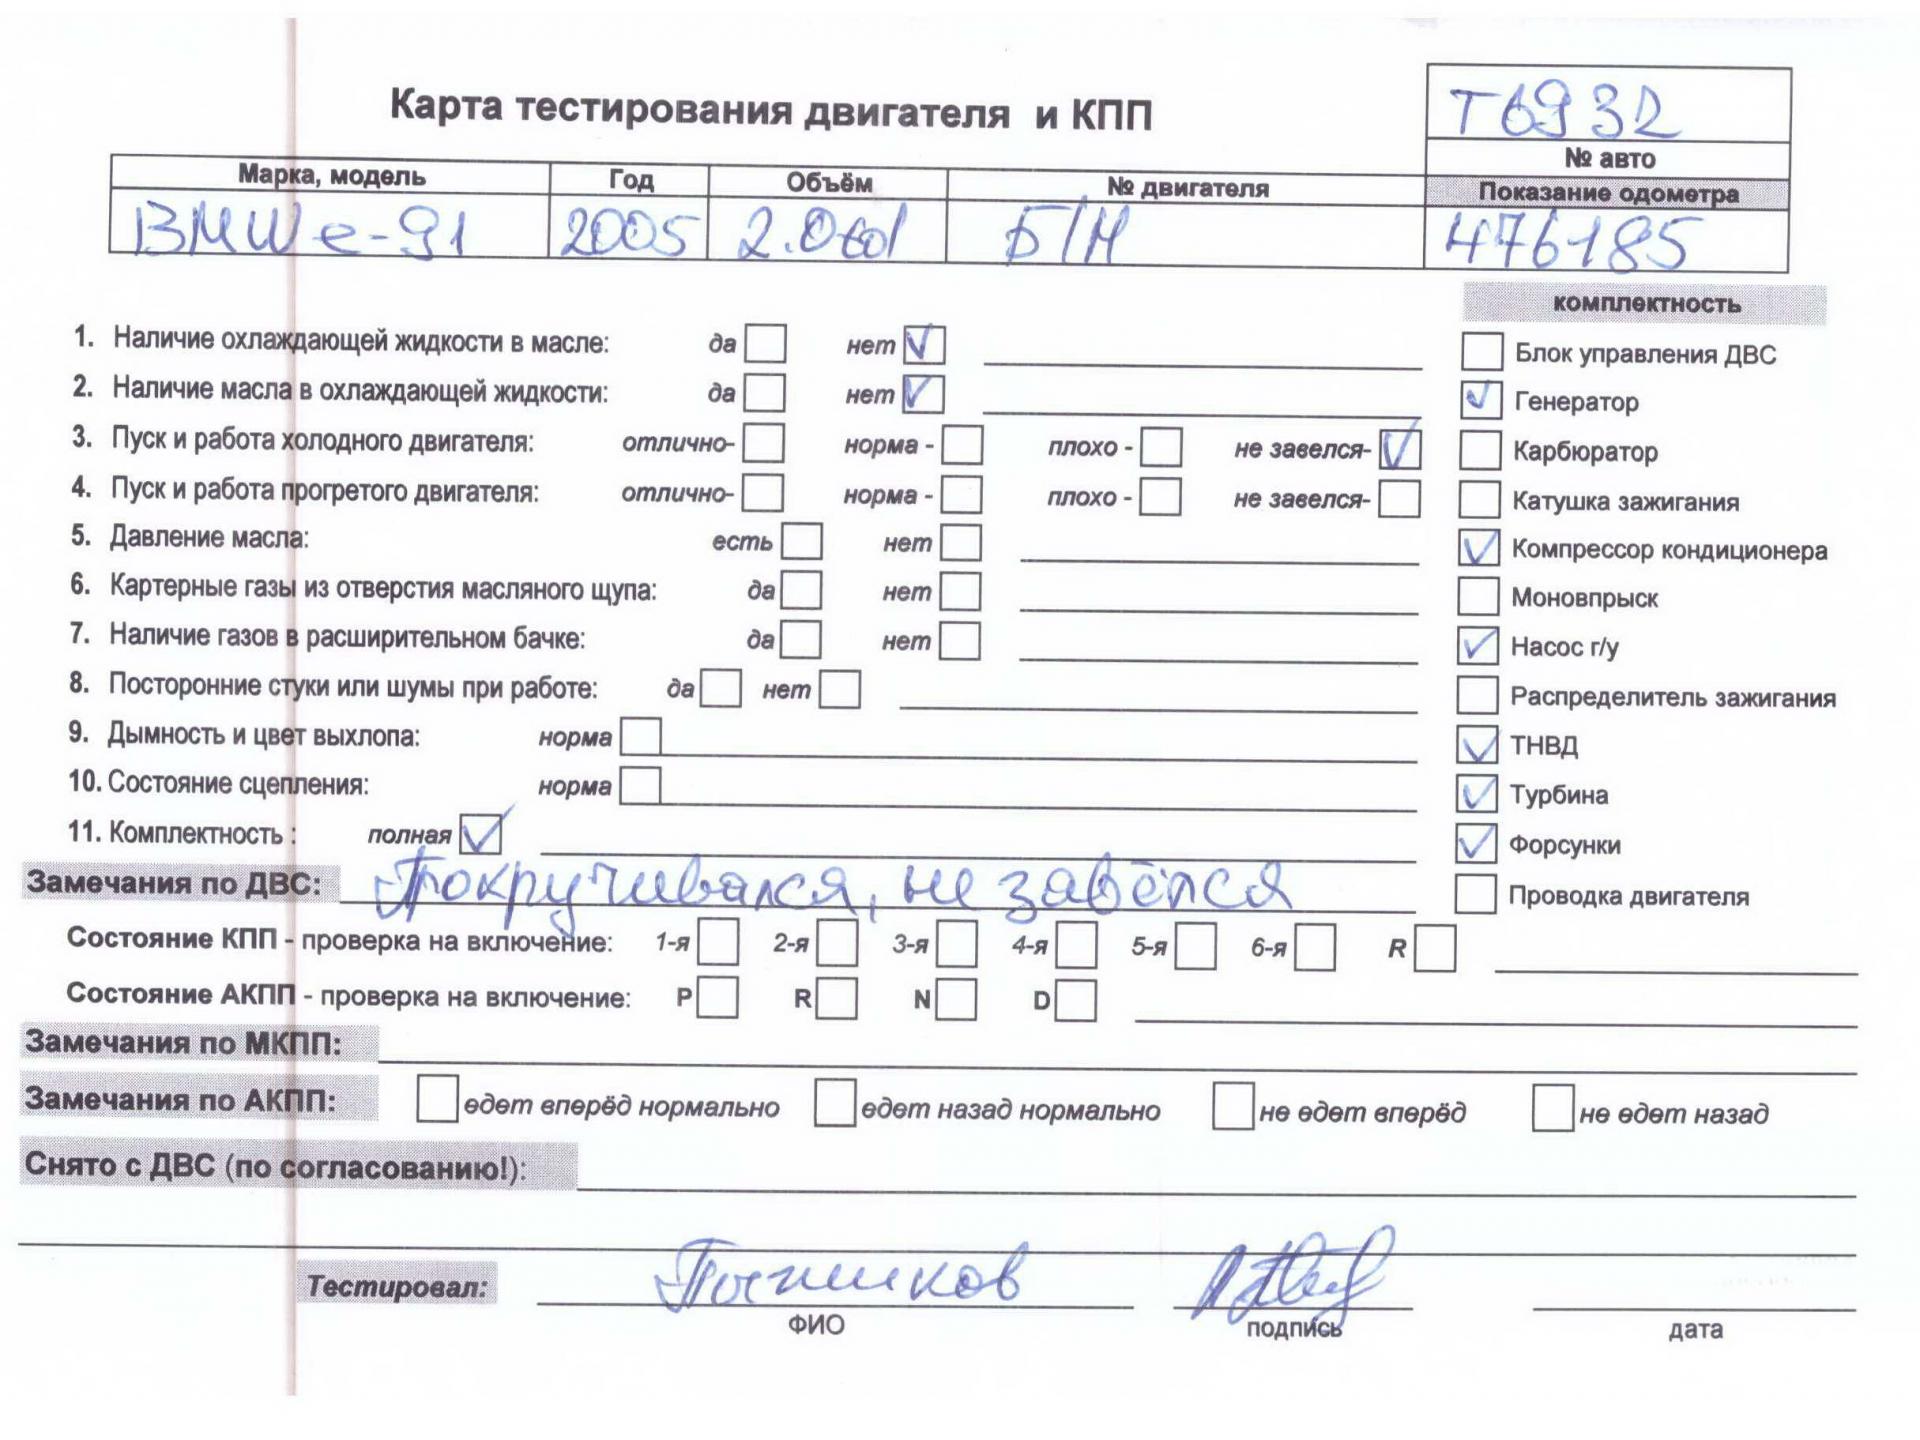 Карта тестирования двигателя и КПП
Т6932
№ авто
Марка, модель Год Объём № двигателя Показание одометра
BMW e-91 2005 2.0 Б/Н 476185
комплектность
1. Наличие охлаждающей жидкости в масле: да нет
Блок управления ДВС
2. Наличие масла в охлаждающей жидкости: да нет
Генератор
3. Пуск и работа холодного двигателя: отлично- норма - плохо - не завелся-
Карбюратор
4. Пуск и работа прогретого двигателя: отлично- норма - плохо - не завелся-
Катушка зажигания
5. Давление масла: есть нет
Компрессор кондиционера
6. Картерные газы из отверстия масляного щупа: да нет
Моновпрыск
7. Наличие газов в расширительном бачке: да нет
Насос г/у
8. Посторонние стуки или шумы при работе: да нет
Распределитель зажигания
9. Дымность и цвет выхлопа: норма
ТНВД
10. Состояние сцепления: норма
Турбина
11. Комплектность : полная
Форсунки
Замечания по ДВС: Покручивался, не завёлся
Проводка двигателя
Состояние КПП - проверка на включение: 1-я 2-я 3-я 4-я 5-я 6-я R
Состояние АКПП - проверка на включение: P R N D
Замечания по МКПП:
Замечания по АКПП: едет вперёд нормально едет назад нормально не едет вперёд не едет назад
Снято с ДВС (по согласованию!):
Тестировал:
ФИО подпись дата